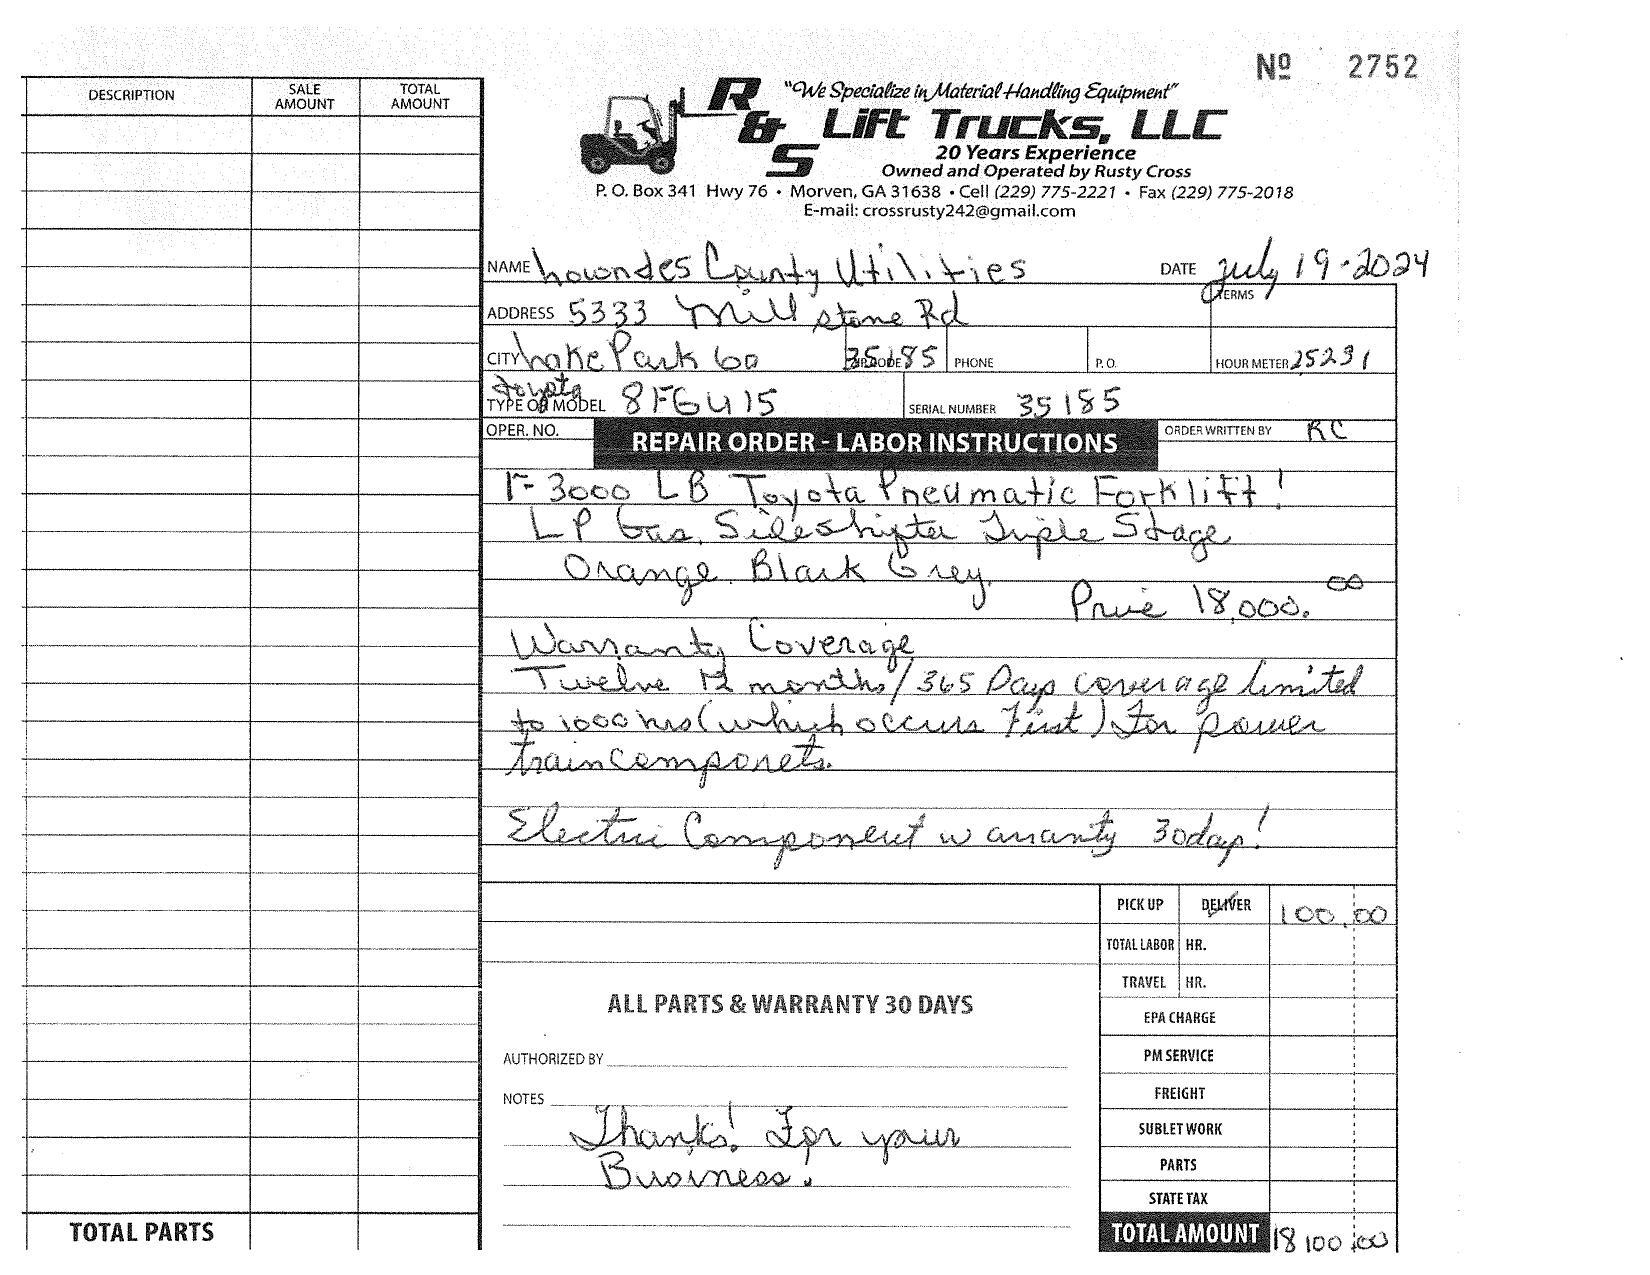 Nº 2752
DESCRIPTION SALE AMOUNT TOTAL AMOUNT
"We Specialize in Material Handling Equipment"
R & S Lift Trucks, LLC
20 Years Experience
Owned and Operated by Rusty Cross
P. O. Box 341 Hwy 76 • Morven, GA 31638 • Cell (229) 775-2221 • Fax (229) 775-2018
E-mail: crossrusty242@gmail.com
NAME Lowndes County Utilities DATE July 19-2024
ADDRESS 5333 Mill stone Rd TERMS
CITY Lake Park Ga ZIP CODE 35185 PHONE P.O. HOUR METER 25231
Toyota
TYPE OR MODEL 8FGU15 SERIAL NUMBER 35185
OPER. NO. REPAIR ORDER - LABOR INSTRUCTIONS ORDER WRITTEN BY RC
1- 3000 LB Toyota Pneumatic Forklift!
LP Gas, Sideshifter Triple Stage
Orange. Black Grey.
Price 18,000.00
Warranty Coverage
Twelve 12 months/365 Days coverage limited
to 1000 hrs (which occurs First) For power
train componets.
Electric Component warranty 30 days!
PICK UP DELIVER 100.00
TOTAL LABOR HR.
TRAVEL HR.
ALL PARTS & WARRANTY 30 DAYS
EPA CHARGE
AUTHORIZED BY
PM SERVICE
NOTES
FREIGHT
Thanks! For your
SUBLET WORK
Business.
PARTS
STATE TAX
TOTAL PARTS
TOTAL AMOUNT 18100.00